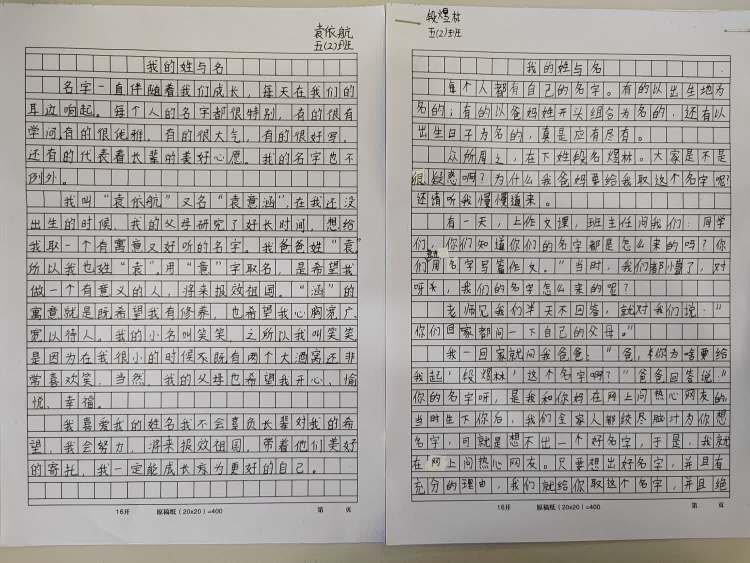 袁依航
五(2)班
我的姓与名
名字一直伴随着我们成长，每天在我们的
耳边响起。每个人的名字都很特别，有的很有
学问有的很优雅，有的很大气，有的很好写，
还有的代表着长辈的美好心愿。我的名字也不
例外。
我叫“袁依航”又名“袁意涵”，在我还没
出生的时候，我的父母研究了好长时间，想给
我取一个有寓意又好听的名字。我爸爸姓“袁”
所以我也姓“袁”。用“意”字取名，是希望我
做一个有意义的人，将来报效祖国。“涵”的
寓意就是既希望我有修养，也希望我心胸宽广、
宽以待人。我的小名叫笑笑，之所以我叫笑笑
是因为在我很小的时候不既有两个大酒窝还非
常喜欢笑，当然，我的父母也希望我开心、愉
悦、幸福。
我喜爱我的姓名我不会辜负长辈对我的希
望，我会努力，将来报效祖国，带着他们美好
的寄托，我一定能成长为更好的自己。
16开 原稿纸（20x20）=400 第 页
段煜林
五(2)班
我的姓与名
每个人都有自己的名字。有的以出生地为
名的；有的以爸妈姓开头组合为名的，还有以
出生日子为名的，真是应有尽有。
众所周之，在下姓段名煜林。大家是不是
很疑惑啊？为什么我爸妈要给我取这个名字呢？
还请听我慢慢道来。
有一天，上作文课，班主任问我们：同学
们，你们知道你们的名字都是怎么来的吗？你
们用名字写篇作文。”当时，我们都懵了，对
呀，我们的名字怎么来的呢？
老师见我们半天不回答，就对我们说：“
你们回家都问一下自己的父母。”
我一回家就问我爸爸：“爸，你为啥要给
我起‘段煜林’这个名字啊？”爸爸回答说：“
你的名字呀，是我和你妈在网上问热心网友的，
当时生下你后，我们全家人都绞尽脑汁为你想
名字，可就是想不出一个好名字，于是，我就
在网上问热心网友。只要想出好名字，并且有
充分的理由，我们就给你取这个名字，并且绝
16开 原稿纸（20x20）=400 第 页